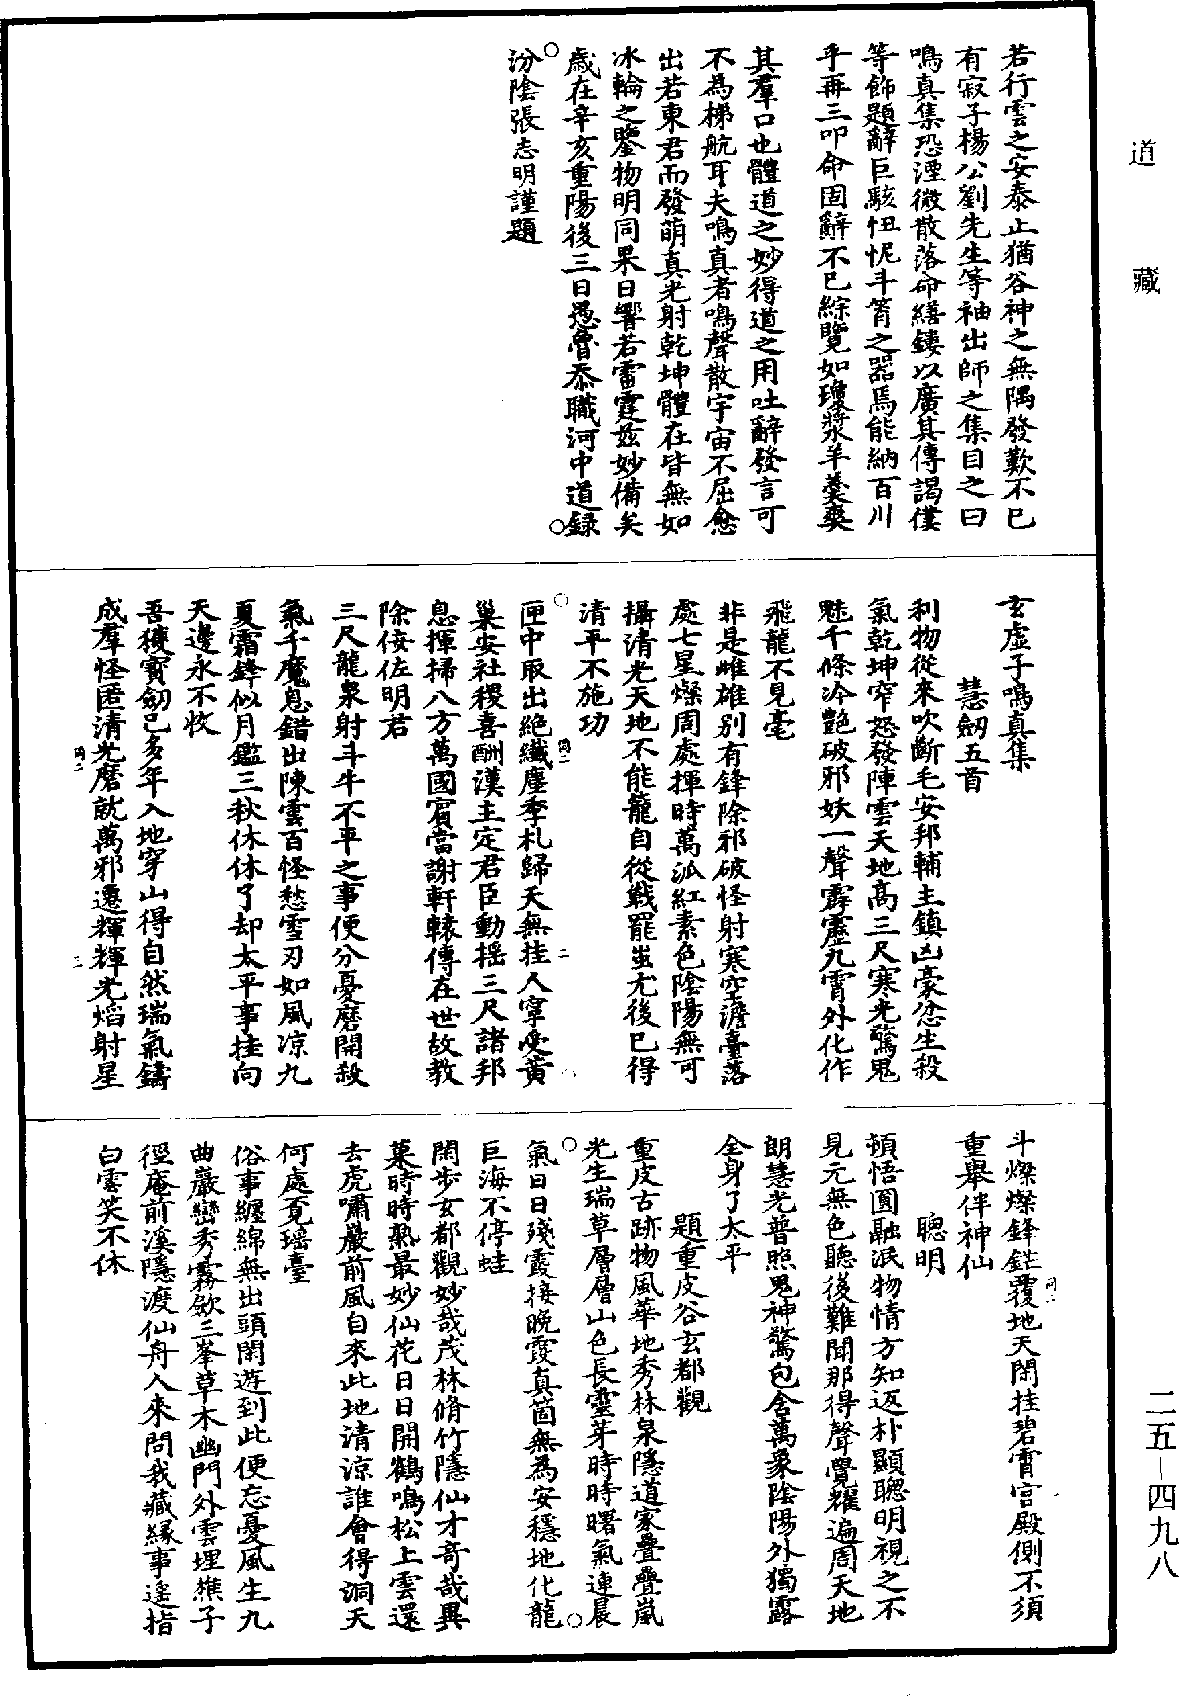 道藏
若行雲之安泰止猶谷神之無隅發歎不已
有寂子楊公劉先生等袖出師之集目之曰
鳴真集恐湮微散落命繕鏤以廣其傳謁僕
等飾題辭巨駭忸怩斗筲之器焉能納百川
乎再三叩命固辭不已綜覽如瓊漿羊羹爽
其羣口也體道之妙得道之用吐辭發言可
不為梯航耳夫鳴真者鳴聲散宇宙不屈愈
出若東君而發萌真光射乾坤體在皆無如
冰輪之鑒物明同杲日響若雷霆茲妙備矣
歲在辛亥重陽後三日愚魯忝職河中道録
汾陰張志明謹題
玄虛子鳴真集
慧劒五首
利物從來吹斷毛安邦輔主鎮凶豪忿生殺
氣乾坤窄怒發陣雲天地高三尺寒光驚鬼
魅千條冷艷破邪妖一聲霹靂九霄外化作
飛龍不見毫
非是雌雄別有鋒除邪破怪射寒空澹臺落
處七星燦周處揮時萬派紅素色陰陽無可
攝清光天地不能籠自從戰罷蚩尤後已得
清平不施功
匣中取出絶纖塵季札歸天無挂人寧受黃
巢安社稷喜酬漢主定君臣動搖三尺諸邦
息揮掃八方萬國賓當謝軒轅傳在世故教
除佞佐明君
三尺龍泉射斗牛不平之事便分憂磨開殺
氣千魔息錯出陳雲百怪愁雪刃如風凉九
夏霜鋒似月鑑三秋休休了却太平事挂向
天邊永不收
吾獲寶劒已多年入地穿山得自然瑞氣鑄
成羣怪匿清光磨就萬邪遷輝輝光焰射星
斗燦燦鋒鋩覆地天閑挂碧霄宫殿側不須
重舉伴神仙
聰明
頓悟圓融泯物情方知返朴顯聰明視之不
見元無色聽後難聞那得聲覺耀遍周天地
朗慧光普照鬼神驚包含萬象陰陽外獨露
全身了太平
題重皮谷玄都觀
重皮古跡物風華地秀林泉隱道家疊疊嵐
光生瑞草層層山色長靈芽時時曙氣連晨
氣日日殘霞接晚霞真箇無為安穩地化龍
巨海不停蛙
閑步玄都觀妙哉茂林脩竹隱仙才奇哉異
菓時時熟最妙仙花日日開鶴鳴松上雲還
去虎嘯巖前風自來此地清凉誰會得洞天
何處覓瑶臺
俗事纏綿無出頭閑遊到此便忘憂風生九
曲巖巒秀霧斂三峯草木幽門外雲埋樵子
徑庵前溪隱渡仙舟人來問我藏縁事遥指
白雲笑不休
二五-四九八